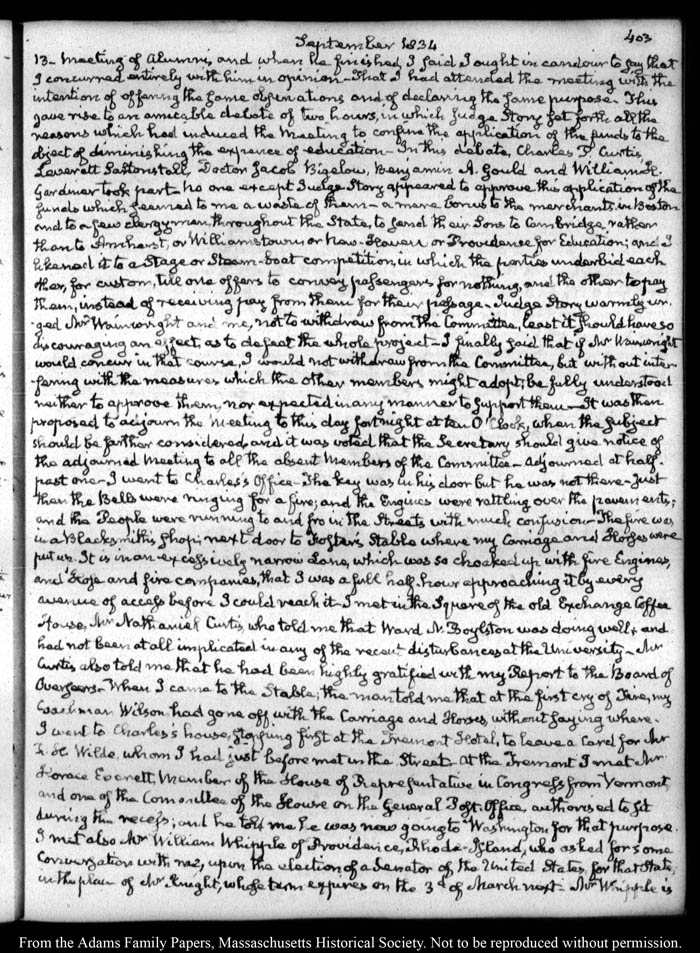 September 1834
403
13- Meeting of Alumni, and when he finished, I said I ought in candour to say that
I concurred entirely with him in opinion- That I had attended the meeting with the
intention of offering the same observations and of declaring the same purpose. This
gave rise to an amicable debate of two hours, in which Judge Story set forth all the
reasons which had induced the Meeting to confine the application of the funds to the
object of diminishing the expence of education- In this debate, Charles P. Curtis,
Leverett Saltonstall, Doctor Jacob Bigelow, Benjamin A. Gould and William H.
Gardiner took part- No one except Judge Story appeared to approve this application of the
funds which seemed to me a waste of them- a mere bonus to the merchants in Boston
and to a few clergyman throughout the State, to send their Sons to Cambridge, rather
than to Amherst, or Williamstown or New-Haven or Providence for Education; and I
likened it to a Stage or Steam-boat competition, in which the parties underbid each
other, for custom, till one offers to convey passengers for nothing, and the other to pay
them, instead of receiving pay from them for their passage- Judge Story warmly ur-
ged Mr Wainwright and me, not to withdraw from the Committee, least it should have so
discouraging an effect, as to defeat the whole project- I finally said that if Mr Wainwright
would concur in that course, I would not withdraw from the Committee, but without inter-
fering with the measures which the other members might adopt, be fully understood
neither to approve them, nor expected in any manner to support them- It was then
proposed to adjourn the Meeting to this day fortnight at ten O'Clock, when the subject
should be farther considered, and it was voted that the Secretary should give notice of
the adjourned Meeting to all the absent Members of the Committee- Adjourned at half-
past one- I went to Charles's Office- The key was in his door but he was not there- Just
then the Bells were ringing for a fire; and the Engines were rattling over the pavements;
and the People were running to and fro in the Streets with much confusion- The fire was
in a Blacksmith's shop, next door to Foster's Stable where my Carriage and Horses were
put up. It is in an excessively narrow Lane, which was so choaked up with fire Engines,
and Hose and fire companies, that I was a full half-hour approaching it by every
avenue of access before I could reach it- I met in the Square of the old Exchange Coffee
House, Mr Nathaniel Curtis, who told me that Ward N. Boylston was doing well, and
had not been at all implicated in any of the recent disturbances at the University- Mr
Curtis also told me that he had been highly gratified with my Report to the Board of
Overseers- When I came to the Stable, the man told me that at the first cry of Fire, my
Coachman Wilson had gone off with the Carriage and Horses, without saying where-
I went to Charles's house, stopping first at the Tremont Hotel, to leave a Card for Mr
R. H. Wilde, whom I had just before met in the Street- At the Tremont I met Mr
Horace Everett, Member of the House of Representative in Congress from Vermont,
and one of the Committee of the House on the General Post-Office, authorised to sit
during the recess; and he told me he was now going to Washington for that purpose.
I met also Mr William Whipple of Providence, Rhode-Island, who asked for some
Conversation with me, upon the election of a Senator of the United States, for that State,
in the place of Mr Knight, whose term expires on the 3d of March next- Mr Whipple is
From the Adams Family Papers, Massachusetts Historical Society. Not to be reproduced without permission.